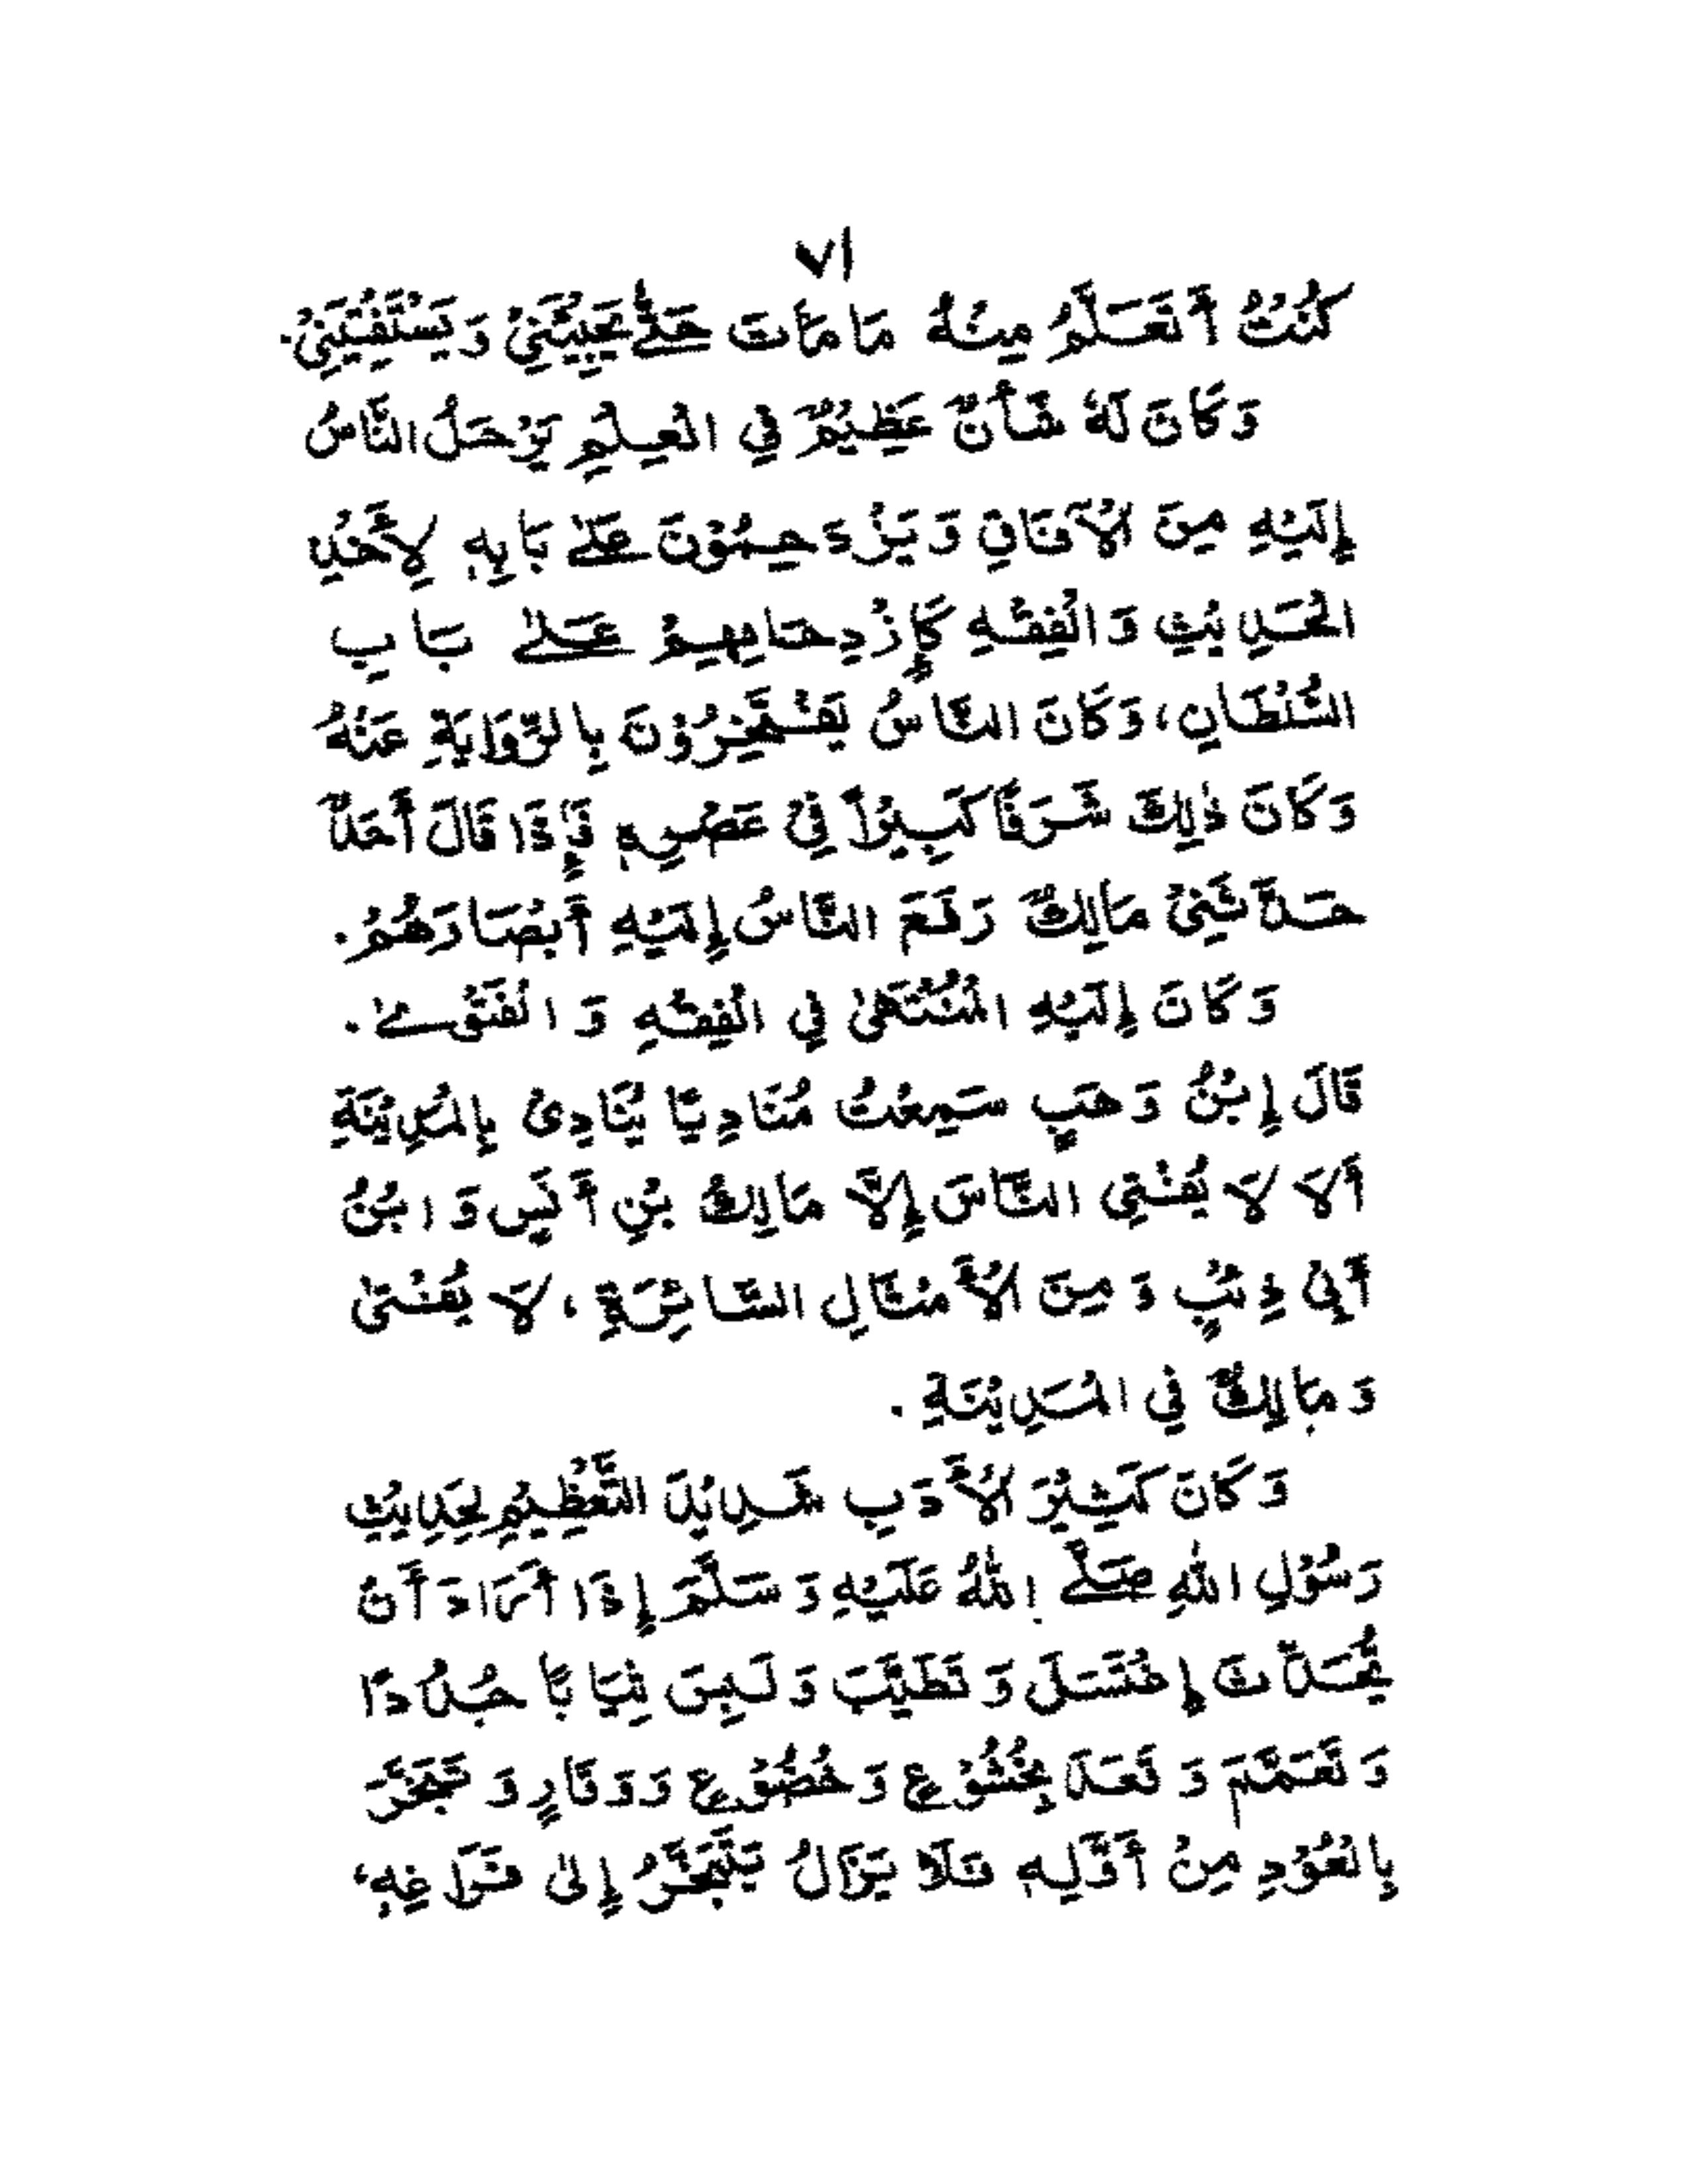 ٧١
كُنْتُ أَتَعَلَّمُ مِنْهُ مَا مَاتَ حَتّٰى يَجِيْئَنِيْ وَيَسْتَفْتِيَنِيْ.
وَكَانَ لَهٗ شَأْنٌ عَظِيْمٌ فِي الْعِلْمِ يَرْحَلُ النَّاسُ
إِلَيْهِ مِنَ الْآفَاقِ وَيَزْدَحِمُوْنَ عَلٰى بَابِهٖ لِأَخْذِ
الْحَدِيْثِ وَالْفِقْهِ كَإِزْدِحَامِهِمْ عَلٰى بَابِ
السُّلْطَانِ، وَكَانَ النَّاسُ يَفْتَخِرُوْنَ بِالرِّوَايَةِ عَنْهُ
وَكَانَ ذٰلِكَ شَرَفًا كَبِيْرًا فِيْ عَصْرِهٖ فَإِذَا قَالَ أَحَدٌ
حَدَّثَنِيْ مَالِكٌ رَفَعَ النَّاسُ إِلَيْهِ أَبْصَارَهُمْ.
وَكَانَ إِلَيْهِ الْمُنْتَهٰى فِي الْفِقْهِ وَالْفَتْوٰى.
قَالَ إِبْنُ وَهَبٍ سَمِعْتُ مُنَادِيًا يُنَادِيْ بِالْمَدِيْنَةِ
أَلَا لَا يُفْتِي النَّاسَ إِلَّا مَالِكُ بْنِ أَنَسٍ وَابْنُ
أَبِيْ ذِئْبٍ وَمِنَ الْأَمْثَالِ السَّائِرَةِ، لَا يُفْتٰى
وَمَالِكٌ فِي الْمَدِيْنَةِ.
وَكَانَ كَثِيْرَ الْأَدَبِ شَدِيْدَ التَّعْظِيْمِ لِحَدِيْثِ
رَسُوْلِ اللهِ صَلَّى اللهُ عَلَيْهِ وَسَلَّمَ إِذَا أَرَادَ أَنْ
يُّحَدِّثَ إِغْتَسَلَ وَتَطَيَّبَ وَلَبِسَ ثِيَابًا جُدُدًا
وَتَعَمَّمَ وَقَعَدَ بِخُشُوْعٍ وَخُضُوْعٍ وَوَقَارٍ وَتَبَخَّرَ
بِالْعُوْدِ مِنْ أَوَّلِهٖ فَلَا يَزَالُ يَتَبَخَّرُ إِلٰى فَرَاغِهٖ،